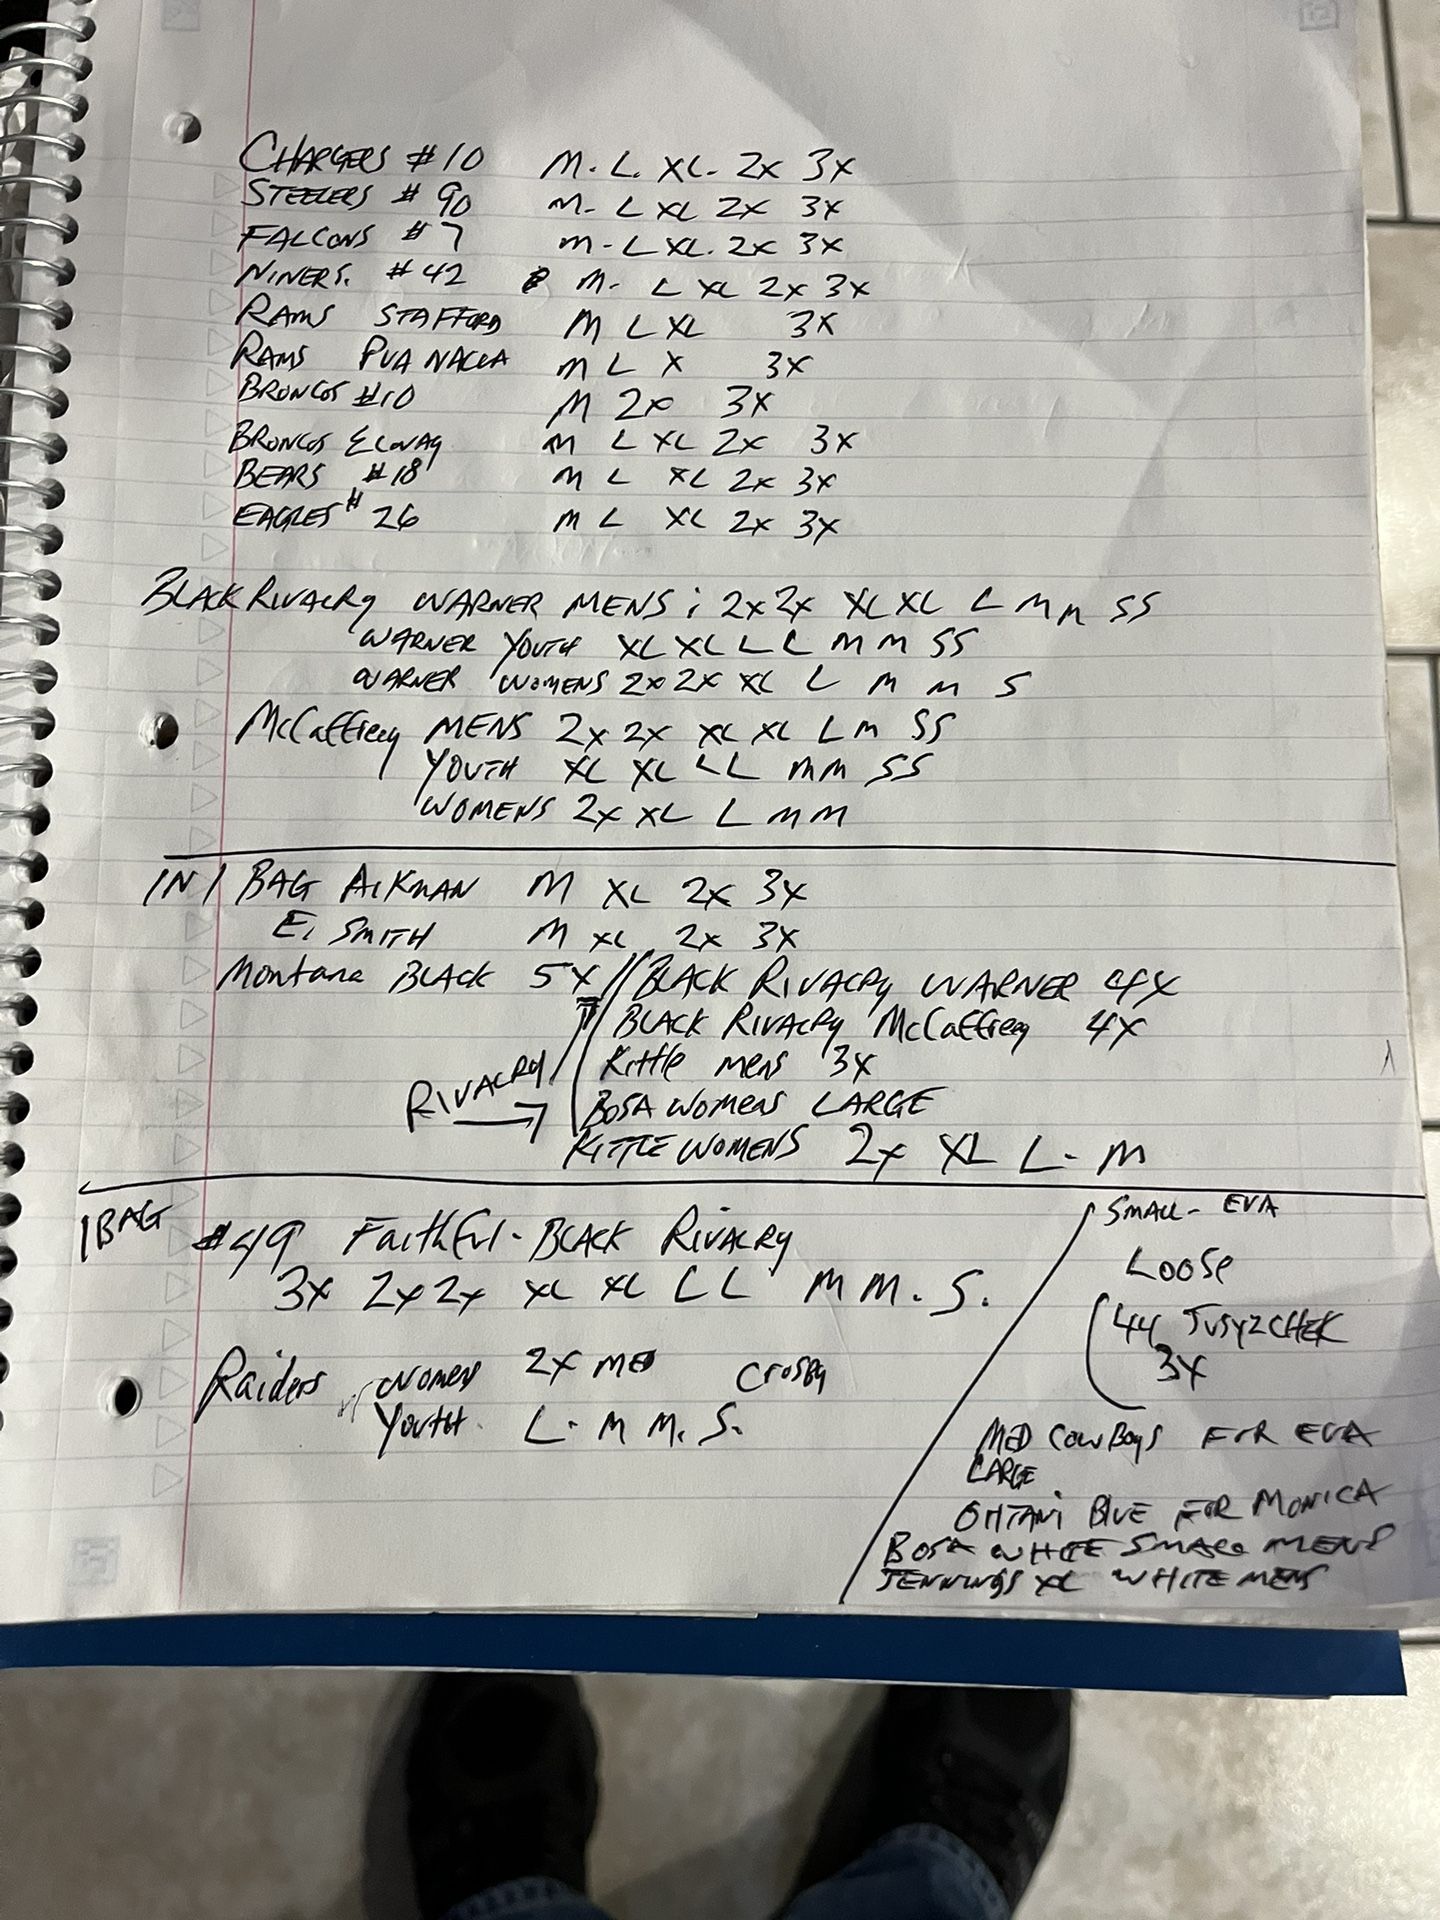 CHARGERS #10 M. L. XL. 2X 3X
STEELERS # 90 M- L XL 2X 3X
FALCONS #7 M- L XL. 2X 3X
NINERS. #42 M. L XL 2X 3X
RAMS STAFFORD M L XL 3X
RAMS PUA NACUA M L X 3X
BRONCOS #10 M 2X 3X
BRONCOS M L XL 2X 3X
BEARS #18 M L XL 2X 3X
EAGLES # 26 M L XL 2X 3X
BLACK RIVALRY WARNER MENS: 2X 2X XL XL L M M SS
WARNER YOUTH XL XL L L M M SS
WARNER WOMENS 2X 2X XL L M M S
McCaffrey MENS 2X 2X XL XL L M SS
YOUTH XL XL L L M M SS
WOMENS 2X XL L M M
IN 1 BAG AIKMAN M XL 2X 3X
E. SMITH M XL 2X 3X
Montana BLACK 5X // BLACK RIVALRY WARNER 4X
BLACK RIVALRY McCaffrey 4X
Kittle mens 3X
RIVALRY → BOSA WOMENS LARGE
KITTLE WOMENS 2X XL L - M
1 BAG #49 Faithful - BLACK RIVALRY
3X 2X 2X XL XL L L M M. S.
Raiders women 2X MED Crosby
Youth L - M M. S.
SMALL - EVA
Loose
44 JUSYZCHEK
3X
MED COWBOYS FOR EVA
LARGE
OHTANI BLUE FOR MONICA
BOSA WHITE SMALL MENS
JENNINGS XL WHITE MENS